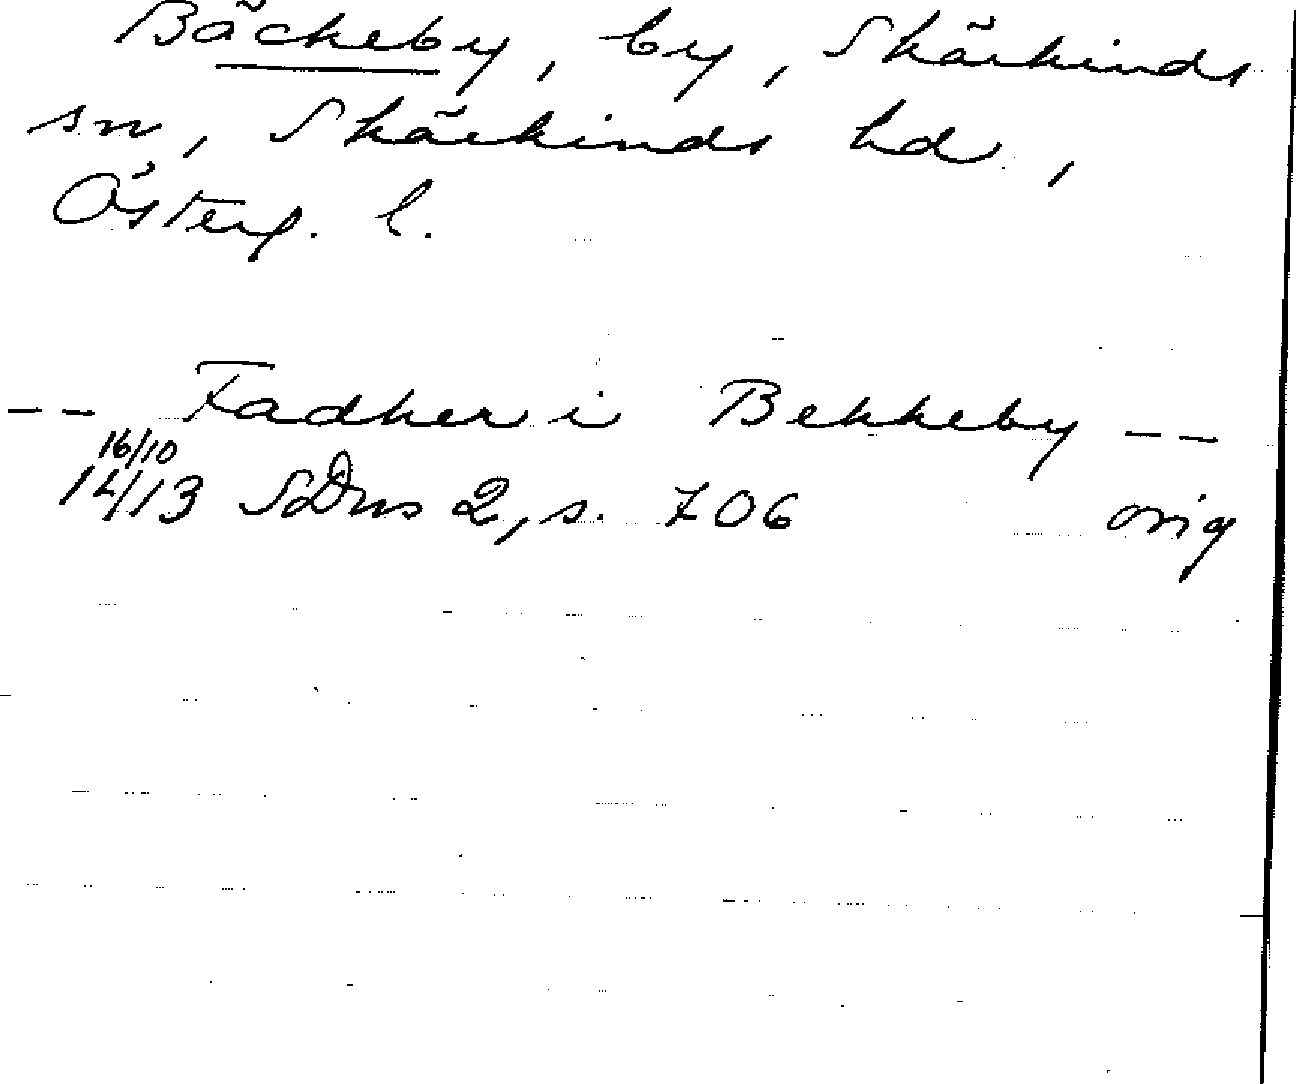 Bäckeby, by, Skärkinds
sn, Skärkinds hd,
Österg. l.
-- Fadher i Bekkeby --
16/10
14/13 SDns 2, s. 706 orig